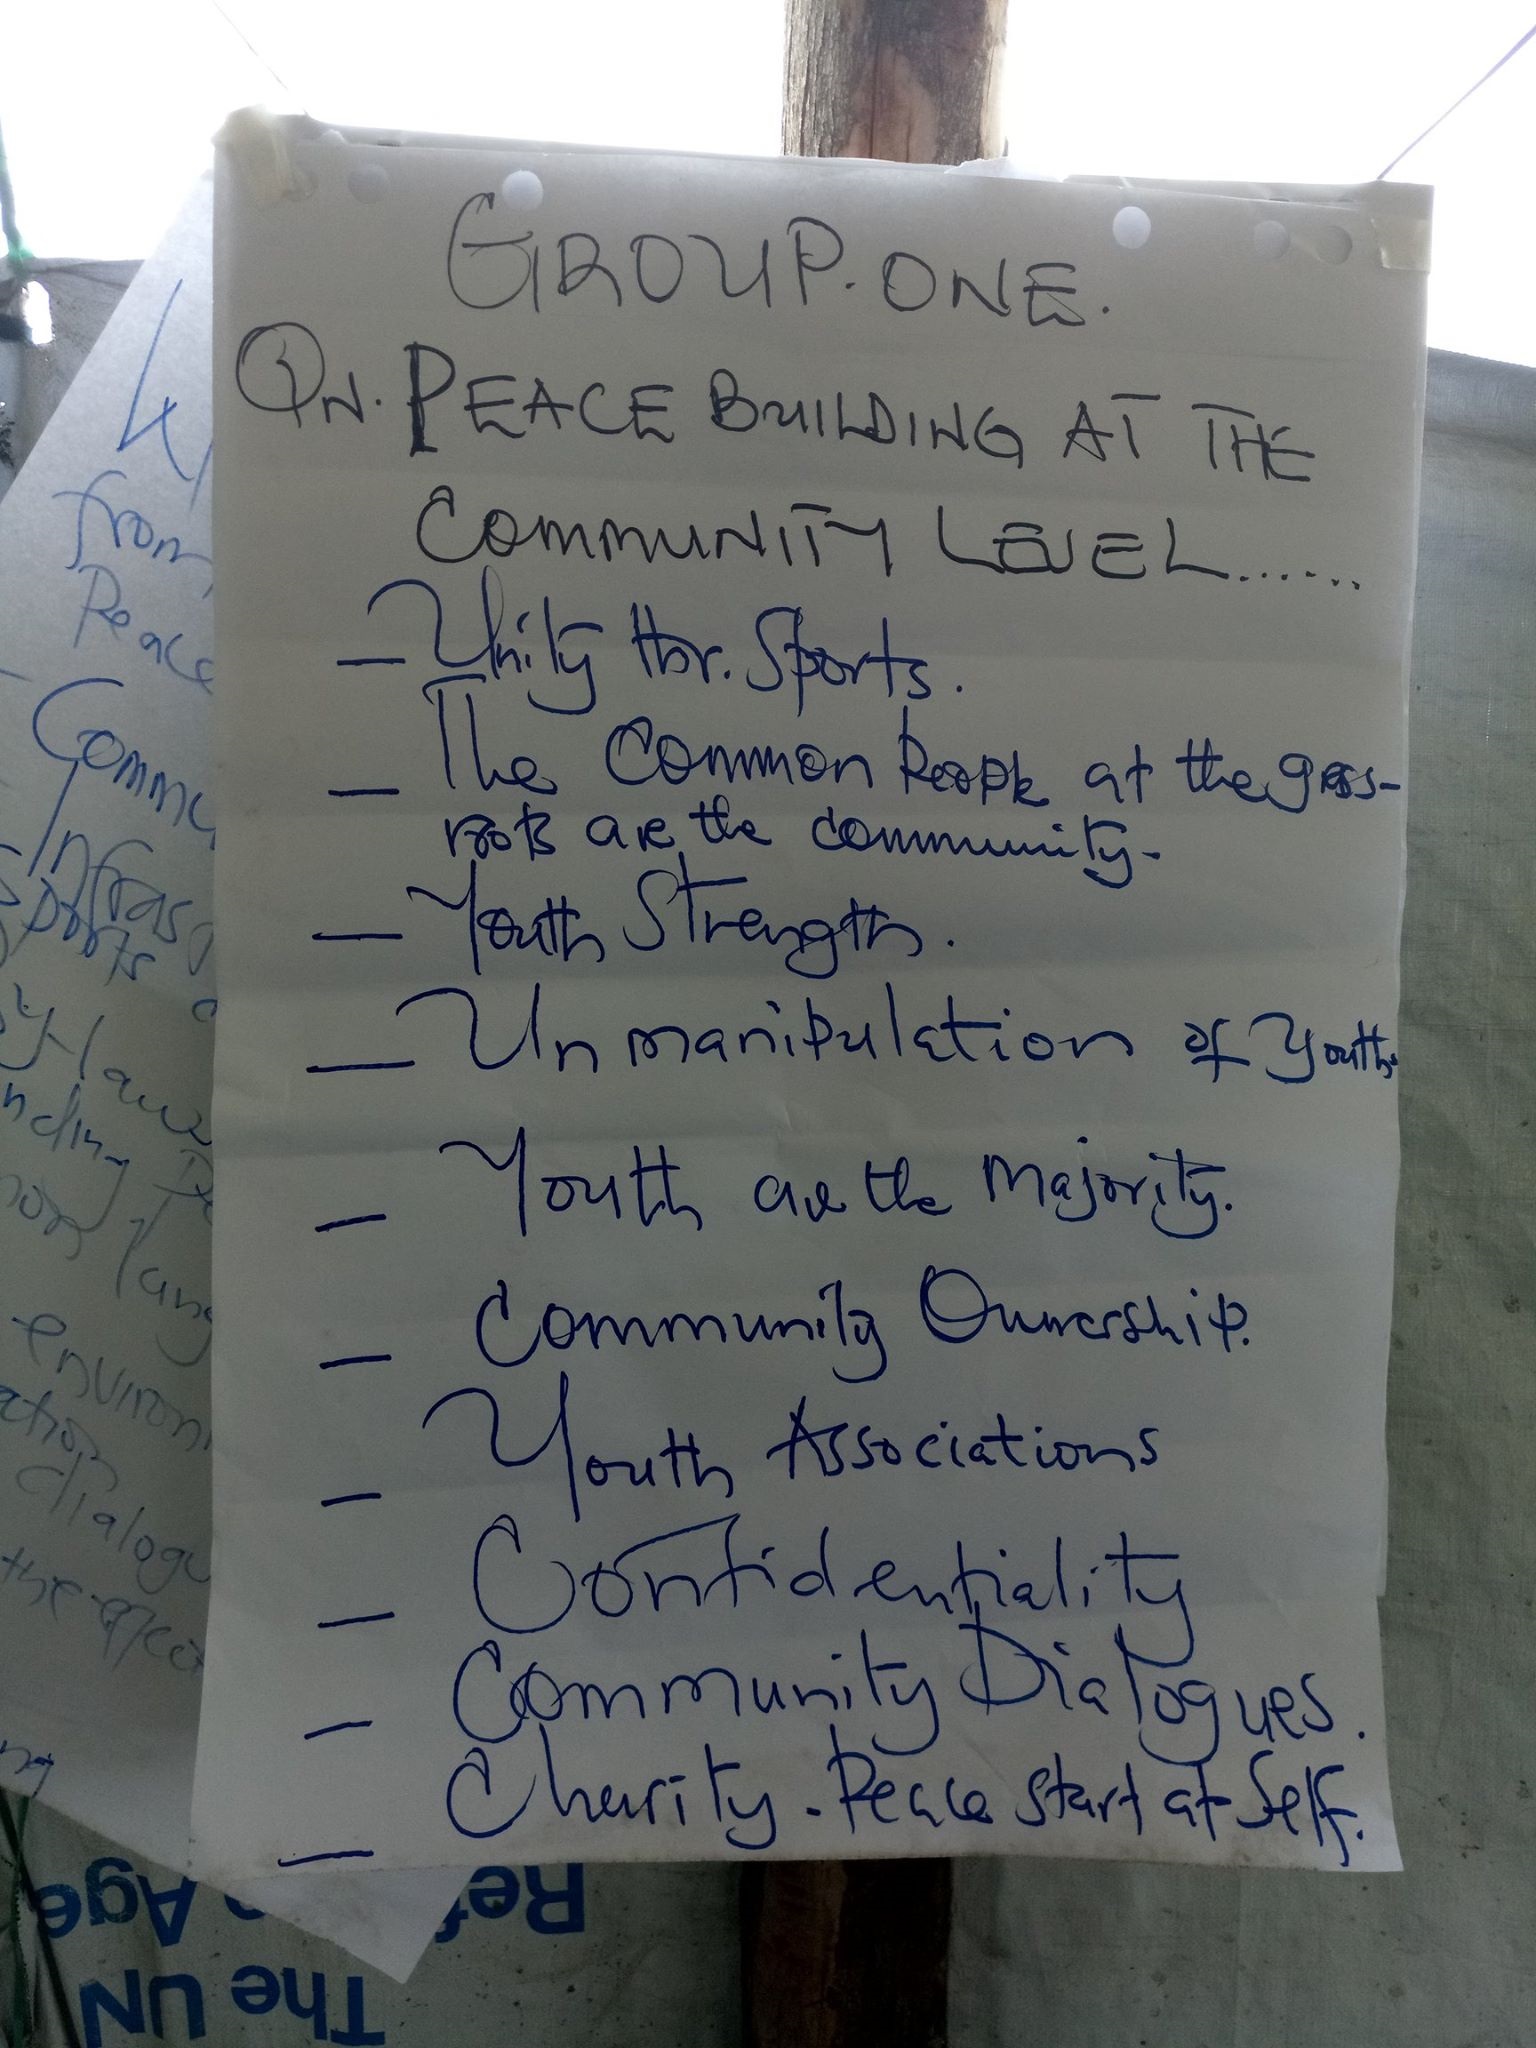 GROUP. ONE.
QN. PEACE BUILDING AT THE
COMMUNITY LEVEL......
— Unity thr. Sports.
— The Common People at the grass-
roots are the community.
— Youth Strength.
— Un manipulation of Youth.
— Youth are the Majority.
— Community Ownership.
— Youth Associations
— Confidentiality
— Community Dialogues.
— Charity. Peace start at self.
from
Peace
Commu
Infras
sports
y-laws
nding
lang
environ
ation
dialogu
the effect
ng
The UN
Ref
Age